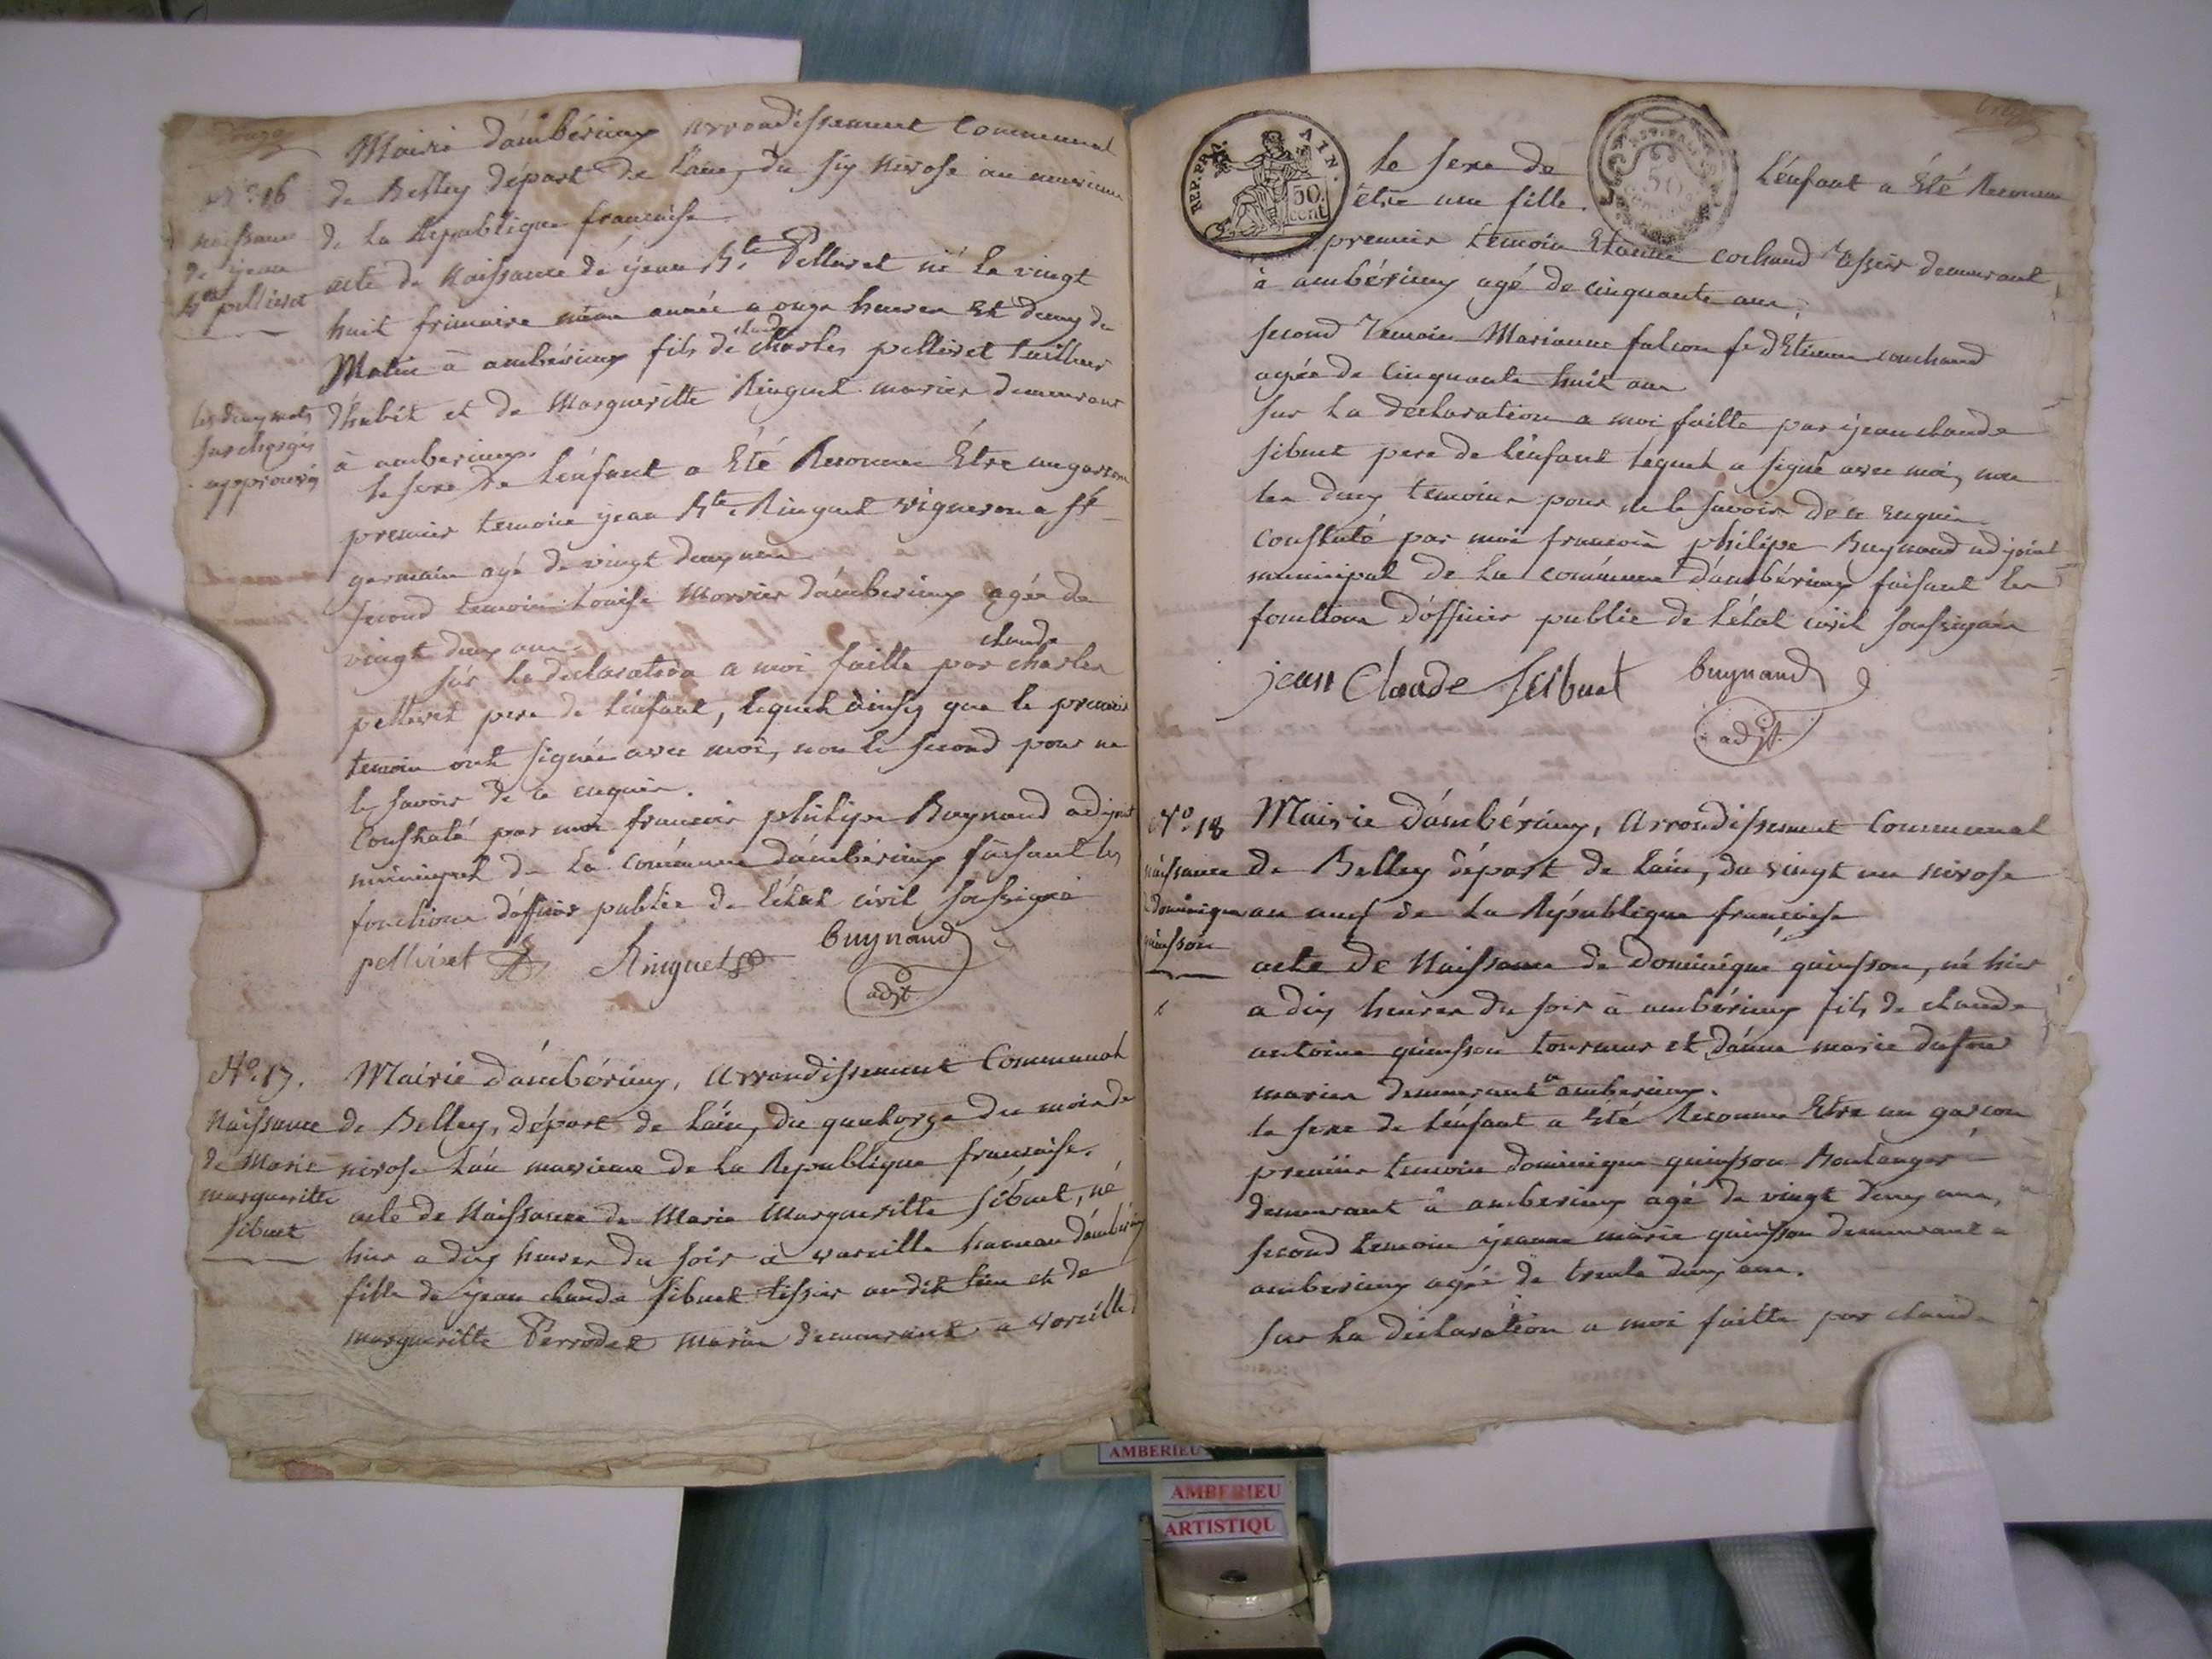 onze
N.º 16
naissance
de jean
Bte pellivet
les deux mots
surchargés
approuvés
Mairie d'ambérieux arrondissement Communal
de Belley départ de l'ain, du six nivose an neuvieme
de la Republique francaise.
acte de Naissance de jean Bte Pellivet né le vingt
huit frimaire même année a onze heures et demy du
Matin à ambérieux fils de claude charles pellivet tailleur
d'habit et de Margueritte Ringuet mariés demeurant
à amberieux.
le sexe de l'enfant a Été Reconnu Être un garcon
premier temoin jean Bte Ringuet vigneron a st
germain agé de vingt deux ans
second temoin Louise Morvier d'amberieux agée de
vingt deux ans.
sur la declaration a moi faitte par claude charles
pellivet pere de l'enfant, lequel ainsy que le premier
temoin ont signés avec moi, non le second pour ne
le savoir de ce enquis.
Constaté par moi francois philipe Buynand adjoint
municipal de la commune d'ambérieux faisant les
fonctions d'officier public de l'état civil soussigné
pellivet Ringuet buynand
adjt
N.º 17.
Naissance
de Marie
margueritte
sibuet
Mairie d'ambérieux, arrondissement Communal
de Belley, départ de l'ain, du quatorze du mois de
nivose l'an neuvieme de la Republique francaise.
acte de Naissance de Marie Margueritte sibuet, né
hier a dix heures du soir à vareille hameau d'ambérieux
fille de jean claude sibuet tissier audit lieu et de
margueritte Perrodet mariés demeurant a vareille
REP. FRA. AIN.
50 cent
50
le sexe de l'enfant a Été Reconnu
être une fille.
premier temoin Etienne cochand Tissier demeurant
à ambérieux agé de cinquante ans,
second Temoin Marianne falcon fe d'Etienne couchand
agée de Cinquante huit ans
sur la declaration a moi faitte par jean claude
sibuet pere de l'enfant lequel a signé avec moi, non
les deux temoins pour ne le savoir de ce enquis.
Constaté par moi francois philipe Buynand adjoint
municipal de la commune d'ambérieux faisant les
fonctions d'officier public de l'état civil soussignés
jean Claude Seibuet buynand
adjt.
N.º 18
naissance
dominique
quinson
Mairie d'ambérieux, arrondissement Communal
de Belley départ de l'ain, du vingt un nivose
an neuf de la République francaise
acte de Naissance de Dominique quinson, né hier
a dix heures du soir à ambérieux fils de claude
antoine quinson tourneur et d'anne marie dufour
mariés demeurant a amberieux.
le sexe de l'enfant a Été Reconnu Etre un garcon
premier temoin dominique quinson Boulanger
demeurant à amberieux agé de vingt deux ans,
second temoin jeanne marie quinson demeurant a
amberieux agée de trente deux ans.
sur la déclaration a moi faitte par claude
AMBERIEU
AMBERIEU
ARTISTIQU